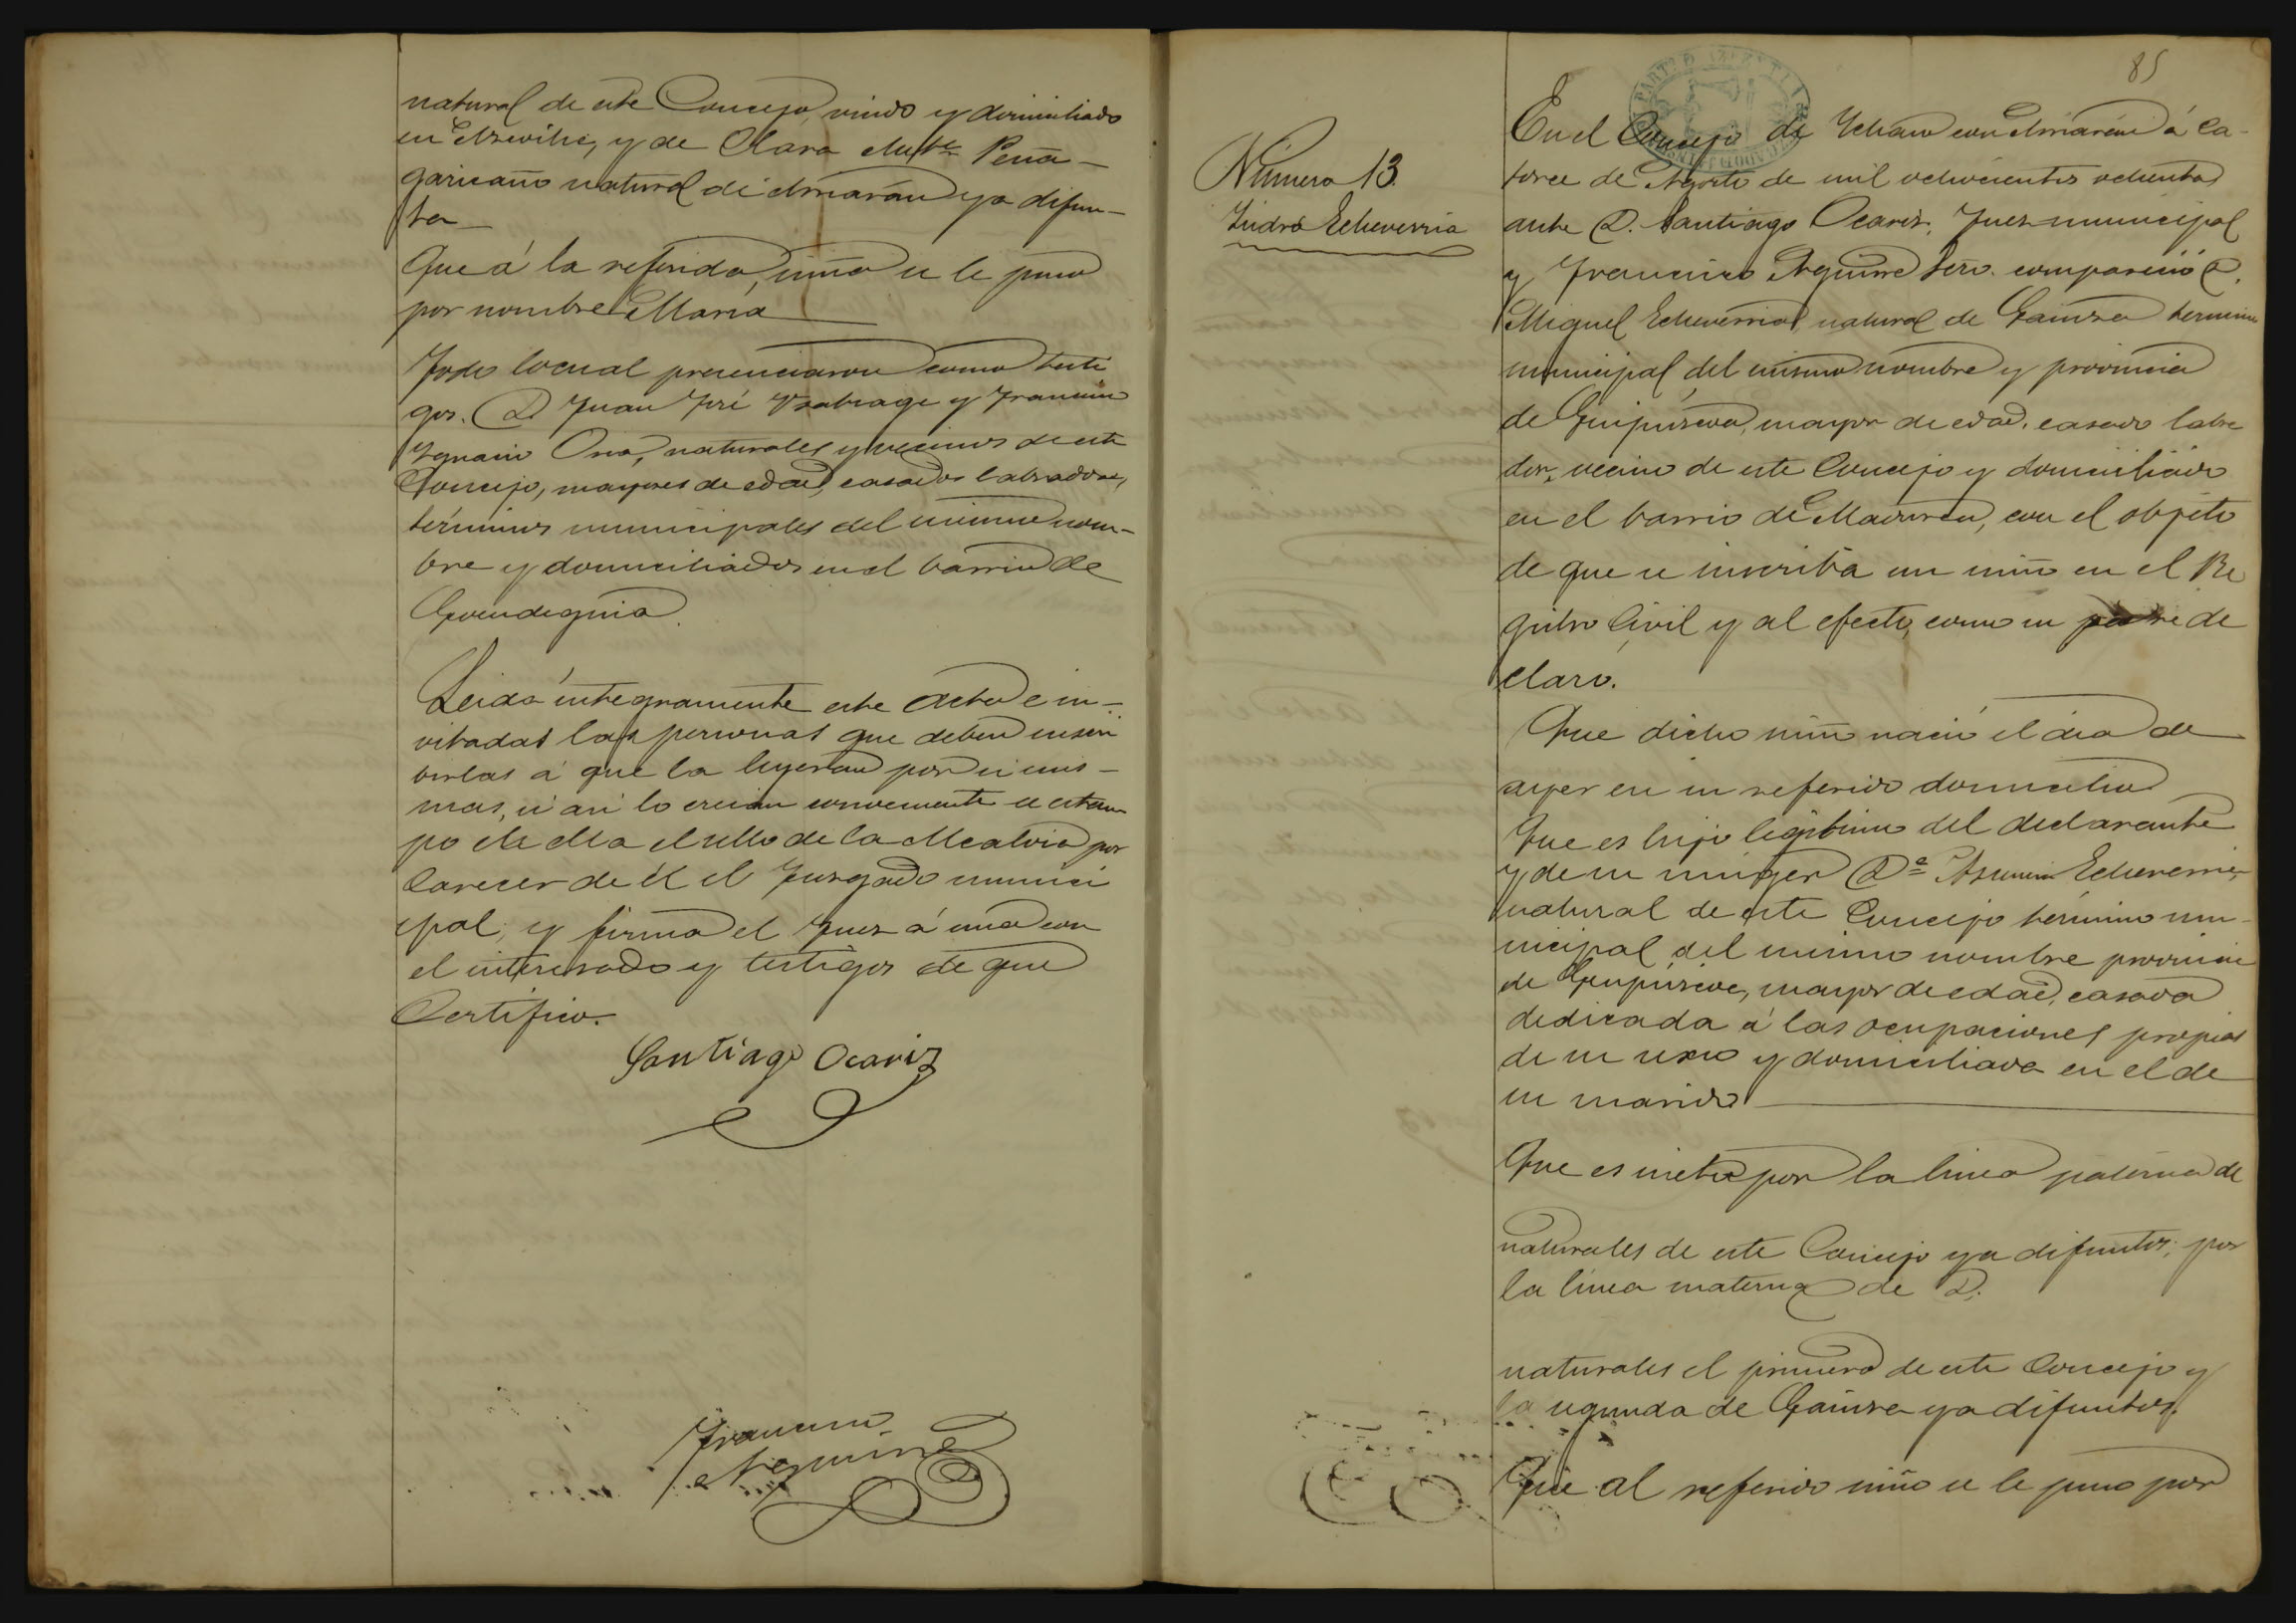 natural de este Concejo, viudo y domiciliado
en y de Clara Peña-
garicano natural de Amarán ya difun-
ta
Que á la referida niña se le puso
por nombre Maria
Todo lo cual presenciaron como testi
gos. D Juan José y Francisco
Ignacio Oria, naturales y vecinos de este
Concejo, mayores de edad, casados labradores,
términos municipales del mismo nom-
bre y domiciliados en el barrio de
Goendeguia.
Leida integramente este Acta e in-
vitadas las personas que deben suscri
birlas á que la leyeran por si mis-
mas, si asi lo creian conveniente se estam
po en ella el sello de la Alcaldia por
Carecer de él el Juzgado munici
pal, y firma el Juez á una con
el interesado y testigos de que
Certifico.
Santiago Ocariz
Francisco
Aguirre
85
Número 13.
Isidro Echeverria
En el Concejo de con Amarán á ca-
torce de Agosto de mil ochocientos ochenta
ante D. Santiago Ocariz, Juez municipal
y Francisco Aguirre Srio. compareció D.
Miguel Echeverria natural de Gainza termino
municipal del mismo nombre y provincia
de Guipúzcoa, mayor de edad, casado labra
dor, vecino de este Concejo y domiciliado
en el barrio de con el objeto
de que se inscriba un niño en el Re
gistro Civil y al efecto, como su padre de
claró.
Que dicho niño nació el dia de
ayer en su referido domicilio
Que es hijo legitimo del declarante
y de su muger Dª Asuncion Echeverria,
natural de este Concejo término mu-
nicipal del mismo nombre provincia
de Guipúzcoa, mayor de edad, casada
dedicada á las ocupaciones propias
de su sexo y domiciliada en el de
su marido
Que es nieto por la linea paterna de
naturales de este Concejo ya difuntos; por
la linea materna de D.
naturales el primero de este Concejo y
la segunda de Gainza ya difuntos.
Que al referido niño se le puso por